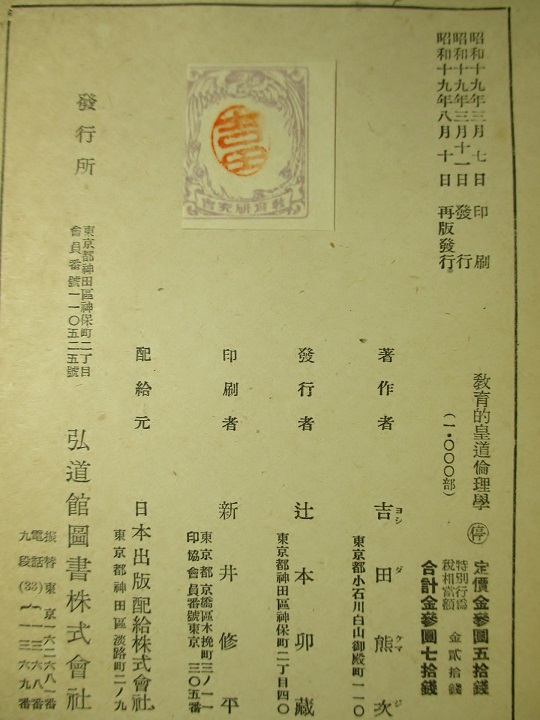 昭和十九年三月七日 印刷
昭和十九年三月十一日 發行
昭和十九年八月十日 再版發行
教育的皇道倫理學
(一・〇〇〇部)
停
定價金參圓五拾錢
特別行爲税相當額 金貳拾錢
合計金參圓七拾錢
著作者 吉田熊次
ヨシ ダ クマ ジ
東京都小石川白山御殿町一一〇
發行者 辻本卯藏
東京都神田區神保町二丁目四〇
印刷者 新井修平
東京都京橋區木挽町三ノ一一
印協會員番號東京三〇五番
配給元 日本出版配給株式會社
東京都神田區淡路町二ノ九
發行所
東京都神田區神保町二丁目
會員番號一一〇五二五號
弘道館圖書株式會社
振替東京一六二六八一番
電話九段(33)
一三六八番
一三六九番